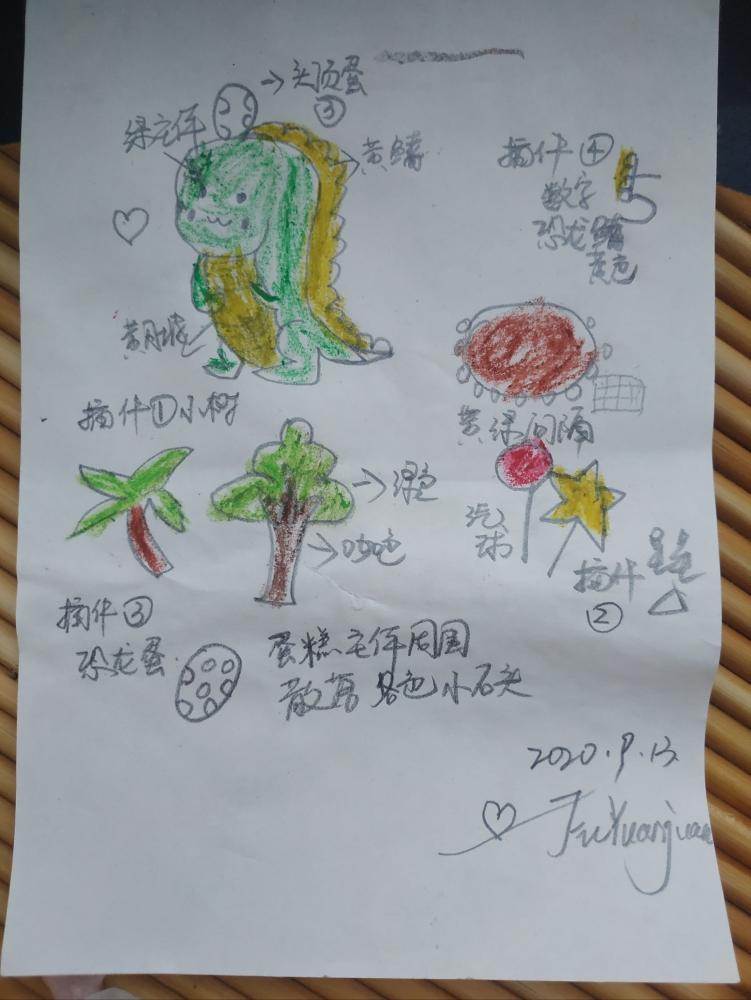 头顶蛋
③
绿主体
黄鳍
插件④
数字
5
恐龙鳍
黄色
黄肚
插件①小树
黄绿间隔
绿色
咖色
汽
球
插件
②
插件③
恐龙蛋
蛋糕主体周围
散落各色小石头
2020.9.13
FuYuanjuan